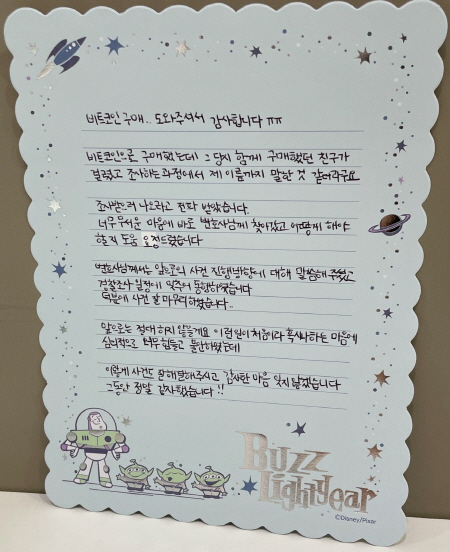 비트코인 구매.. 도와주셔서 감사합니다 ㅠㅠ
비트코인으로 구매했는데 그 당시 함께 구매했던 친구가
걸렸고 조사하는과정에서 제 이름까지 말한 것 같더라구요
조사받으러 나오라고 전화 받았습니다.
너무무서운 마음에 바로 변호사님께 찾아갔고 어떻게 해야
할지 도움 요청드렸습니다
변호사님께서는 앞으로의 사건 진행방향에 대해 말씀해 주셨고
경찰조사 일정에 맞추어 동행하였습니다
덕분에 사건 잘 마무리하였습니다..
앞으로는 절대 하지 않을게요 이런일이 처음이라 혹시나하는 마음에
심리적으로 너무힘들고 불안하였는데
이렇게 사건도 잘해결해주시고 감사한 마음 잊지 않겠습니다
그동안 정말 감사했습니다!!
BUZZ
Lightyear
©Disney/Pixar